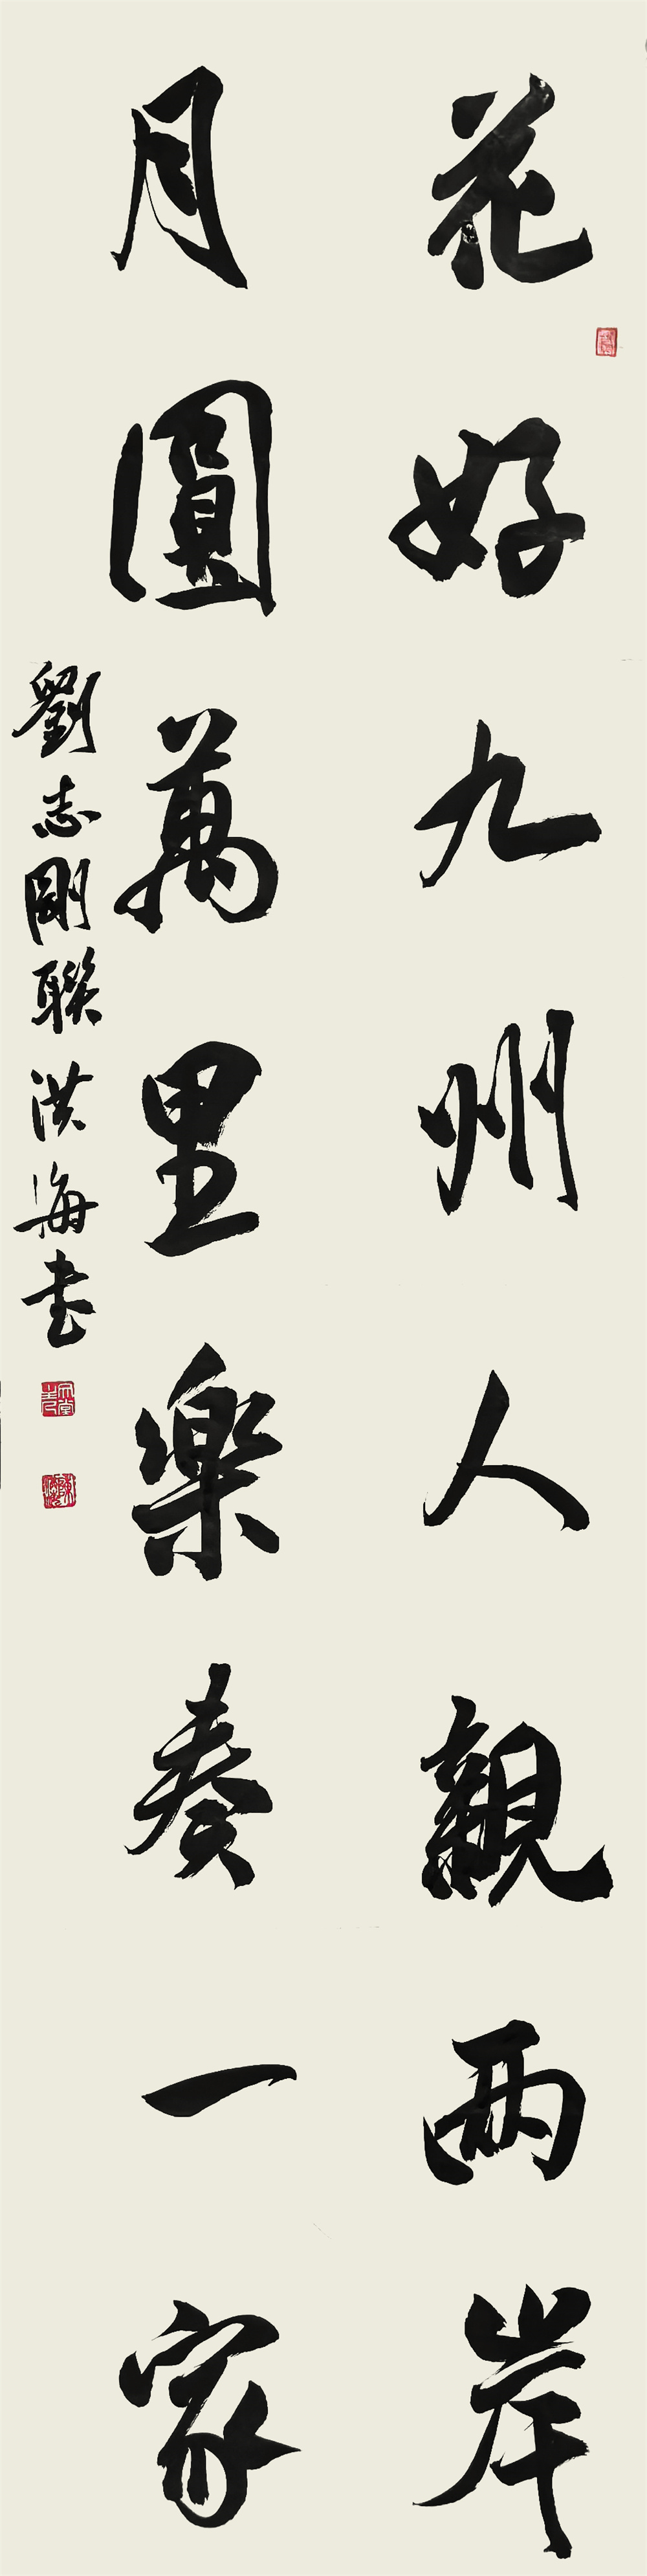 花好九州人觀兩岸
月圓萬里樂奏一家
劉志剛聯洪海书